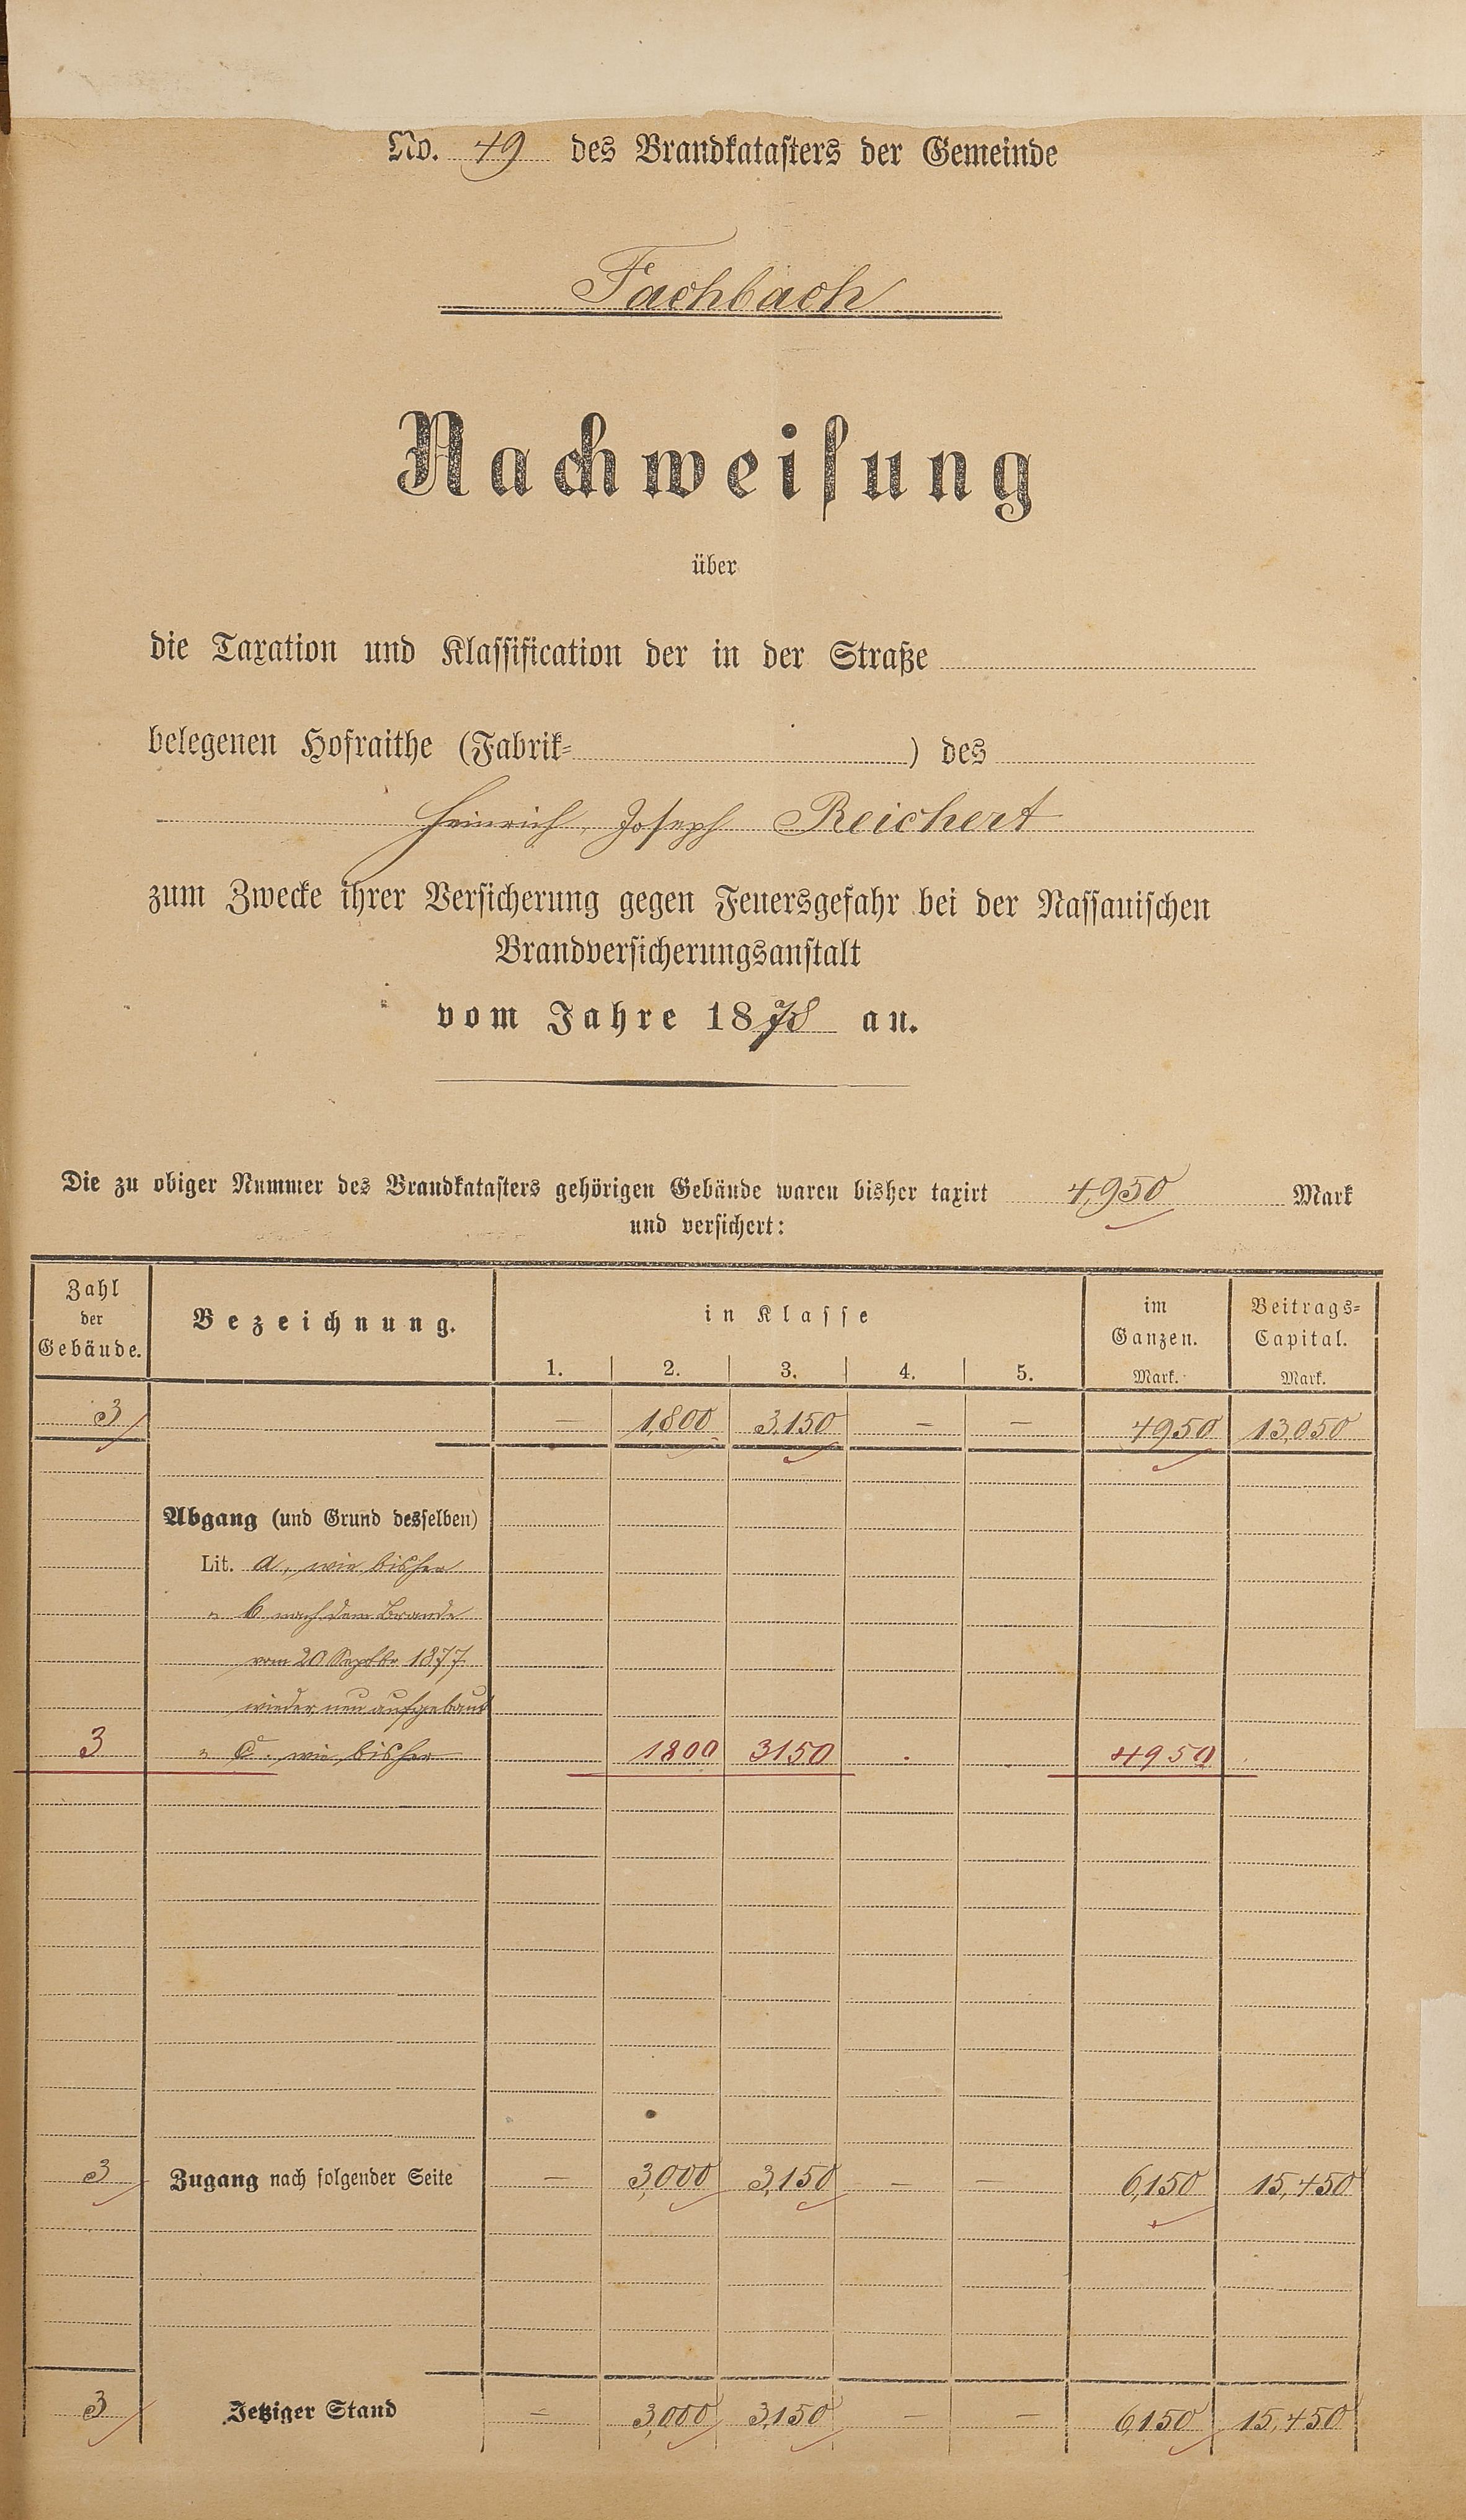 No. 49 des Brandkatasters der Gemeinde
Fachbach
Nachweisung
über
die Taxation und Klassification der in der Straße
belegenen Hofraithe (Fabrik= ) des
Heinrich Joseph Reichert
zum Zwecke ihrer Versicherung gegen Feuersgefahr bei der Nassauischen
Brandversicherungsanstalt
vom Jahre 1878 an.
Die zu obiger Nummer des Brandkatasters gehörigen Gebäude waren bisher taxirt 4,950 Mark
und versichert:
Zahl der Gebäude. Bezeichnung. in Klasse im Ganzen. Beitrags=Capital.
1. 2. 3. 4. 5. Mark. Mark.
3 — 1,800 3,150 — — 4950 13,050
Abgang (und Grund desselben)
Lit. a, wie bisher
" b nach dem Brande
vom 20 Septbr 1877
wieder neu aufgebaut
3 " c. wie bisher 1800 3150 . . 4950
3 Zugang nach folgender Seite — 3,000 3,150 — — 6,150 15,450
3 Jetziger Stand — 3,000 3,150 — — 6,150 15,450